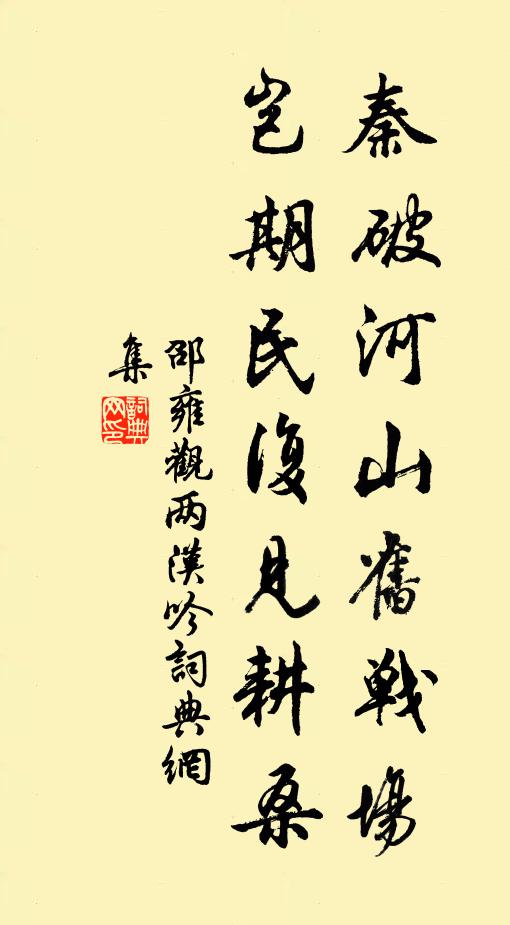 秦破河山舊戰場
豈期民復見耕桑
邵雍觀两漢吟詞典網
集
詞典网印